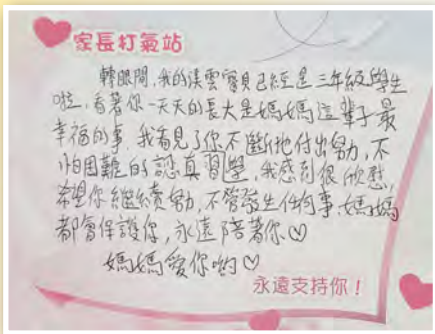 家長打氣站
轉眼間,我的渼雲寶貝已經是三年級學生
啦,看著你一天天的長大是媽媽這輩子最
幸福的事,我看見了你不斷地付出努力,不
怕困難的認真習學,我感到很欣慰,
希望你繼續努力,不管發生任何事,媽媽
都會保護你,永遠陪著你♡
媽媽愛你喲♡
永遠支持你!